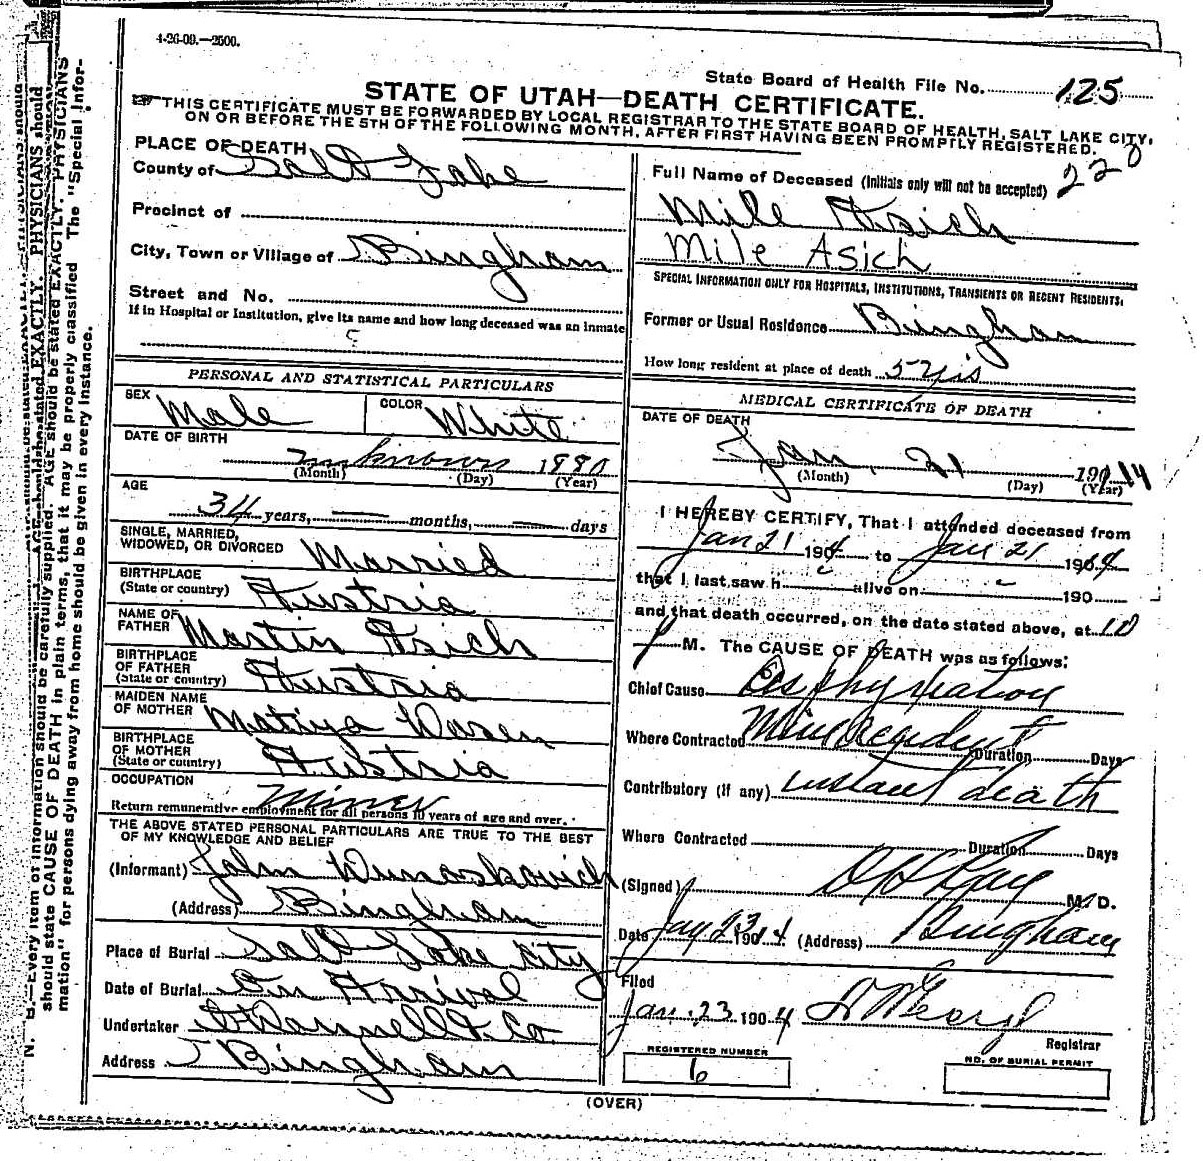 4-26-09.—2500.
State Board of Health File No. 125
STATE OF UTAH—DEATH CERTIFICATE.
THIS CERTIFICATE MUST BE FORWARDED BY LOCAL REGISTRAR TO THE STATE BOARD OF HEALTH, SALT LAKE CITY,
ON OR BEFORE THE 5TH OF THE FOLLOWING MONTH, AFTER FIRST HAVING BEEN PROMPTLY REGISTERED.
220
PLACE OF DEATH
County of Salt Lake
Precinct of
City, Town or Village of Bingham
Street and No.
If in Hospital or Institution, give its name and how long deceased was an inmate
PERSONAL AND STATISTICAL PARTICULARS
SEX Male COLOR White
DATE OF BIRTH
unknown 1880
(Month) (Day) (Year)
AGE
34 years, — months, — days
SINGLE, MARRIED,
WIDOWED, OR DIVORCED Married
BIRTHPLACE
(State or country) Austria
NAME OF
FATHER Martin Asich
BIRTHPLACE
OF FATHER
(State or country) Austria
MAIDEN NAME
OF MOTHER Matiya
BIRTHPLACE
OF MOTHER
(State or country) Austria
OCCUPATION
Miner
Return remunerative employment for all persons 10 years of age and over.
THE ABOVE STATED PERSONAL PARTICULARS ARE TRUE TO THE BEST
OF MY KNOWLEDGE AND BELIEF
(Informant) John
(Address) Bingham
Place of Burial Salt Lake City
Date of Burial On Arrival
Undertaker O'Donnell & Co.
Address Bingham
Full Name of Deceased (Initials only will not be accepted)
Mile Asich
Mile Asich
SPECIAL INFORMATION ONLY FOR HOSPITALS, INSTITUTIONS, TRANSIENTS OR RECENT RESIDENTS.
Former or Usual Residence Bingham
How long resident at place of death 5 yrs
MEDICAL CERTIFICATE OF DEATH
DATE OF DEATH
Jan. 21 1914
(Month) (Day) (Year)
I HEREBY CERTIFY, That I attended deceased from
Jan 21 1904 to Jan 21 1904
that I last saw h alive on 190
and that death occurred, on the date stated above, at 10
P M. The CAUSE OF DEATH was as follows:
Chief Cause Asphyxiation
Where Contracted Mine accident Duration Days
Contributory (if any) instant death
Where Contracted Duration Days
(Signed) M. D.
Date Jan 23 1914 (Address) Bingham
Filed
Jan. 23 1904
Registrar
REGISTERED NUMBER
6
NO. OF BURIAL PERMIT
(OVER)
N. B.—Every item of information should be carefully supplied. AGE should be stated EXACTLY. PHYSICIANS
should state CAUSE OF DEATH in plain terms, that it may be properly classified. The "Special Infor-
mation" for persons dying away from home should be given in every instance.